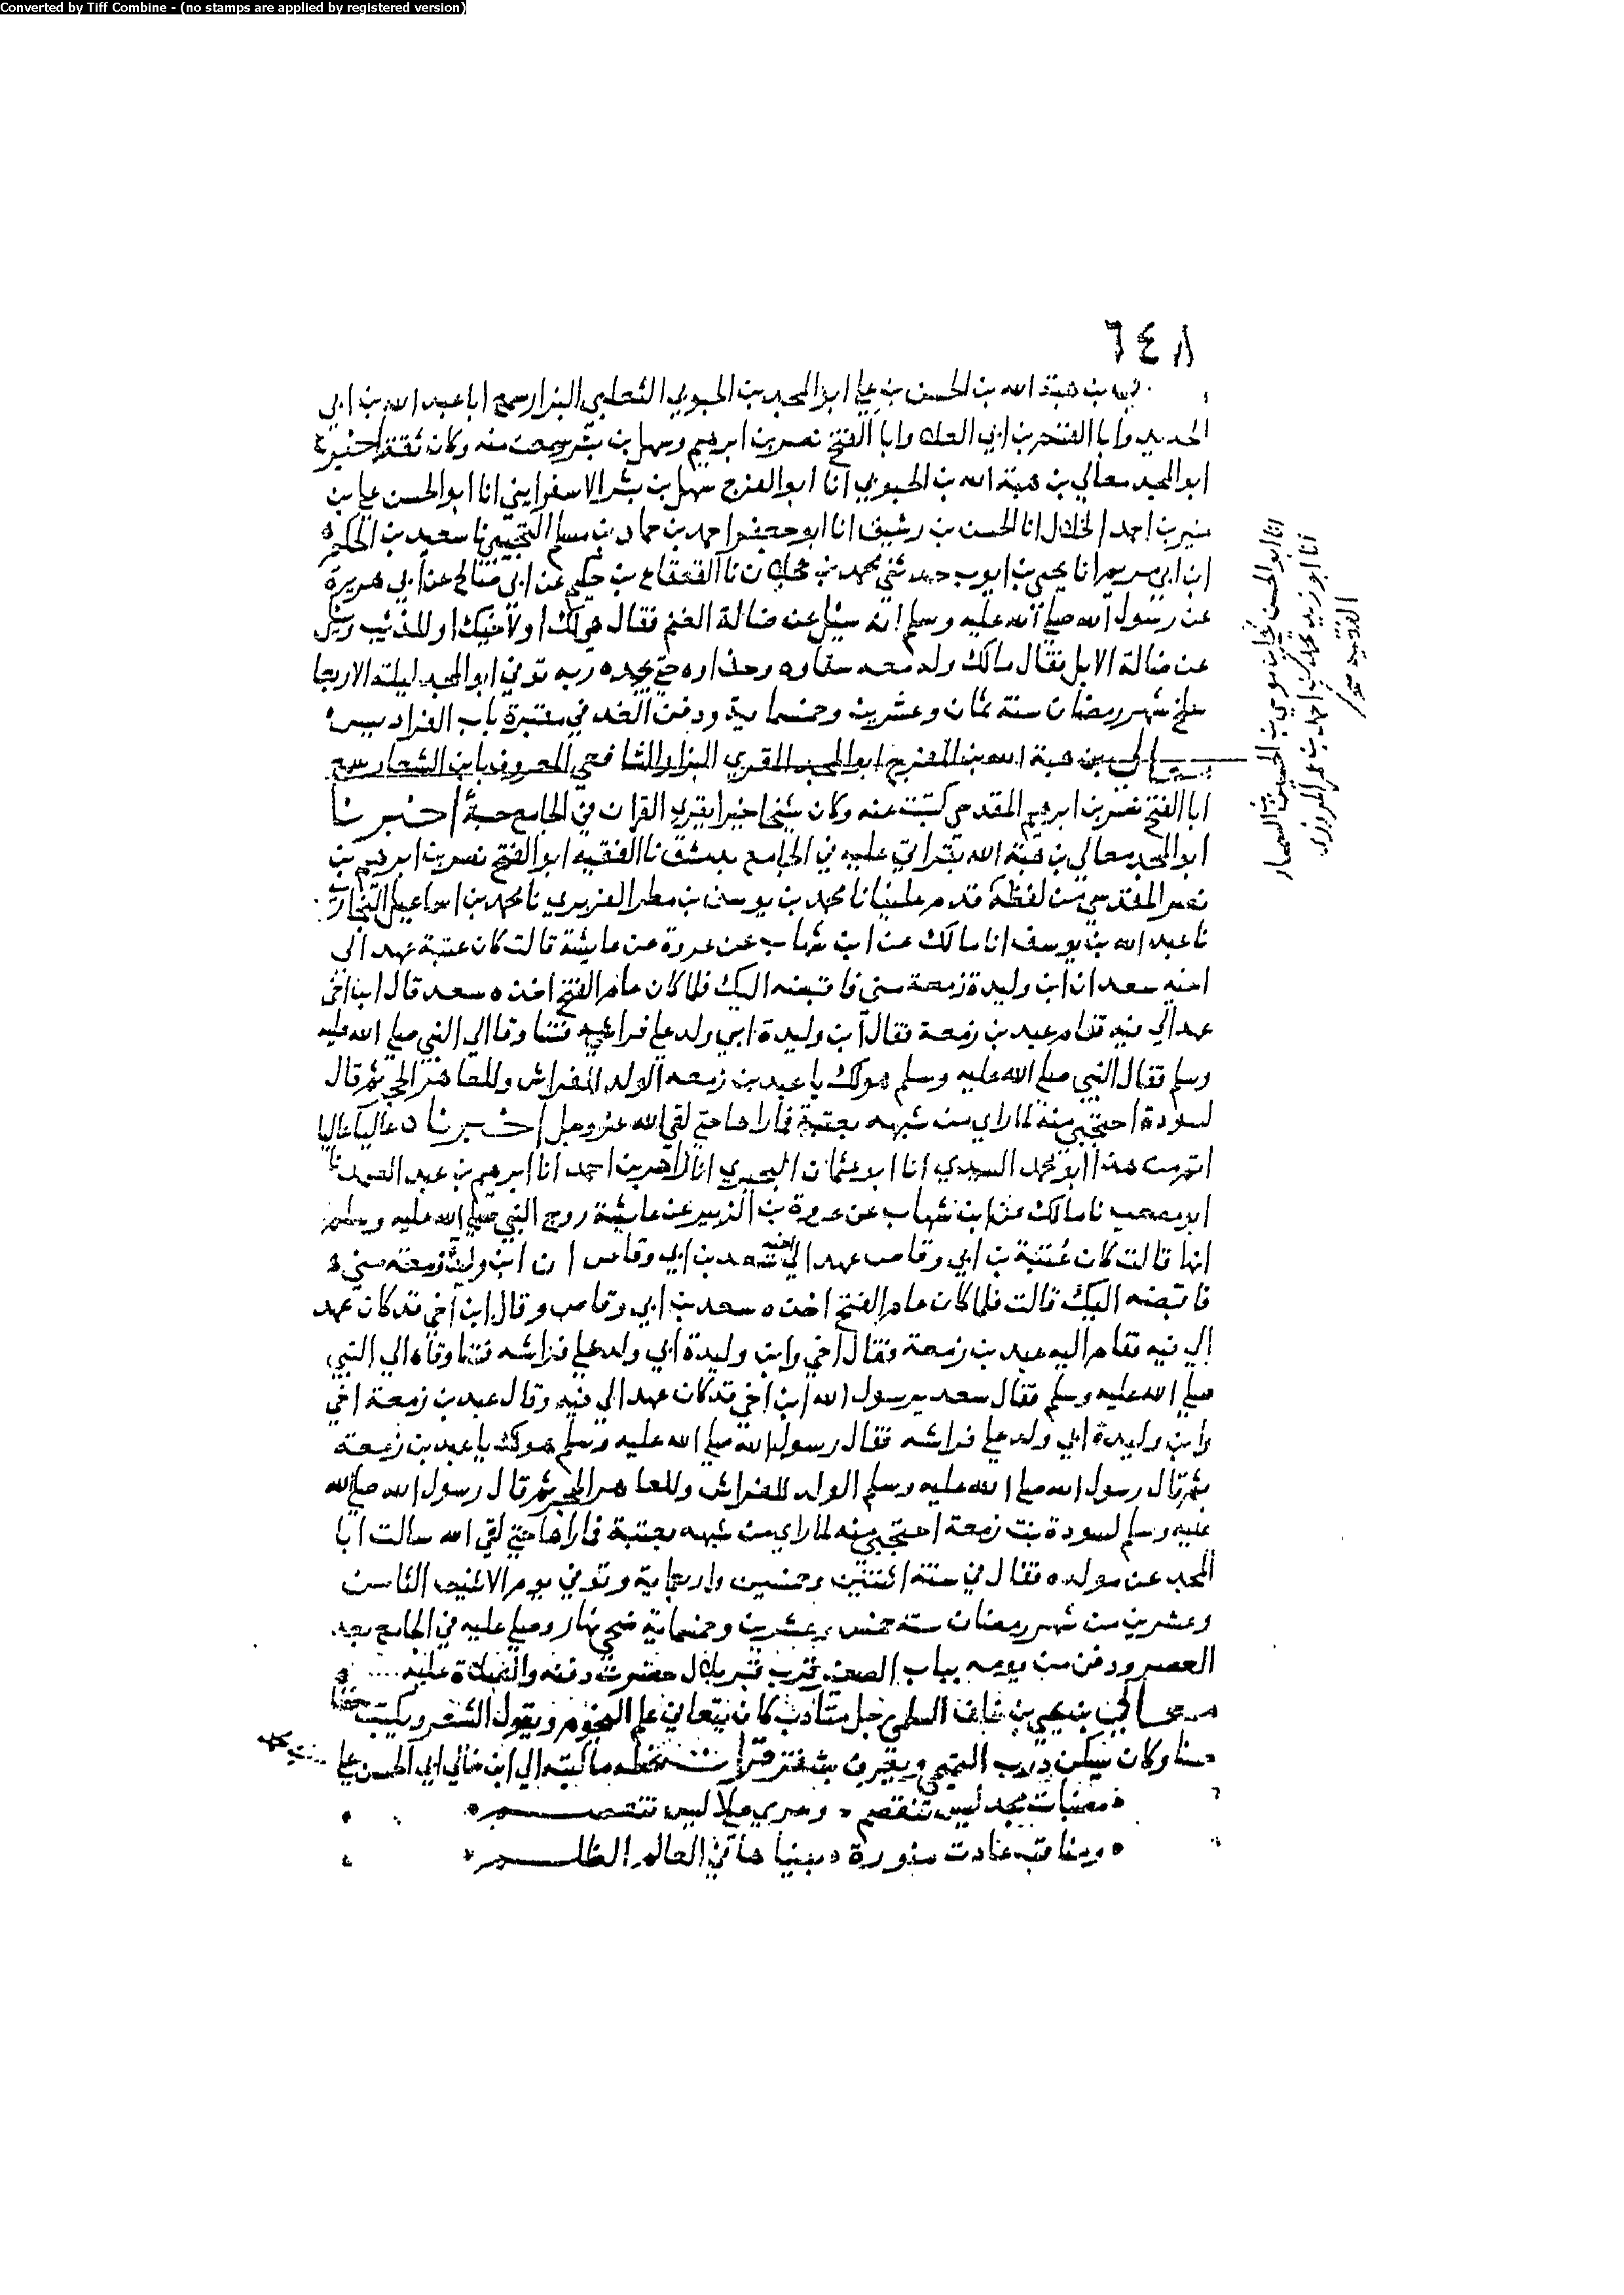 Converted by Tiff Combine - (no stamps are applied by registered version)
٦٤٨
بن هبة الله بن الحسن بن علي ابو المجد بن الحبوبي الثعلبي البزار سمع ابا عبد الله بن ابي
الحديد وابا الفتح نصر بن ابرهيم وسهل بن بشر سمعت منه وكان ثقة اخبرنا
ابو المجد معالي بن هبة الله بن الحبوبي انا ابو الفرج سهل بن بشر الاسفرايني انا ابو الحسن علي بن
منير بن احمد الخلال انا الحسن بن رشيق انا ابو جعفر احمد بن حماد بن مسلم التجيبي نا سعيد بن الحكم
ابن ابي مريم انا يحيى بن ايوب حدثني محمد بن عجلان نا القعقاع بن حكيم عن ابي صالح عن ابي هريرة
عن رسول الله صلى الله عليه وسلم انه سئل عن ضالة الغنم فقال هي لك او لاخيك او للذئب وسئل
عن ضالة الابل فقال مالك وله معه سقاوه وحذاوه حتى يجده ربه توفي ابو المجد ليلة الاربعا
سلخ شهر رمضان سنة ثمان وعشرين وخمسماية ودفن الغد في مقبرة باب الفراديس
معالي بن هبة الله بن المفرج ابو المجد المقري البزار الشافعي المعروف بابن الشعار سمع
ابا الفتح نصر بن ابرهيم المقدسي كتبت عنه وكان شيخا خيرا يقري القران في الجامع حسبة اخبرنا
ابو المجد معالي بن هبة الله بقراتي عليه في الجامع بدمشق نا الفقيه ابو الفتح نصر بن ابرهيم بن
نصر المقدسي من لفظه قدم علينا انا محمد بن يوسف بن مطر الفربري نا محمد بن اسماعيل البخاري
نا عبد الله بن يوسف انا مالك عن ابن شهاب عن عروة عن عايشة قالت كان عتبة عهد الى
اخيه سعد ان ابن وليدة زمعة مني فاقبضه اليك فلما كان عام الفتح اخذه سعد قال ابن اخي
عهد الي فيه فقام عبد بن زمعة فقال ابن وليدة ابي ولد على فراشه فتساوقا الى النبي صلى الله عليه
وسلم فقال النبي صلى الله عليه وسلم هو لك يا عبد بن زمعه الولد للفراش وللعاهر الحجر ثم قال
لسودة احتجبي منه لما راي من شبهه بعتبة فما راها حتى لقي الله عز وجل اخبرنا عاليا
اتم من هذا ابو محمد السيدي انا ابو عثمان البحيري انا زاهر بن احمد انا ابرهيم بن عبد الصمد نا
ابو مصعب نا مالك عن ابن شهاب عن عروة بن الزبير عن عايشة زوج النبي صلى الله عليه وسلم
انها قالت كان عتبة بن ابي وقاص عهد الى اخيه سعد بن ابي وقاص ان ابن وليدة زمعة مني
فاقبضه اليك قالت فلما كان عام الفتح اخذه سعد بن ابي وقاص وقال ابن اخي قد كان عهد
الي فيه فقام اليه عبد بن زمعة فقال اخي وابن وليدة ابي ولد على فراشه فتساوقاه الى النبي
صلى الله عليه وسلم فقال سعد يرسول الله ابن اخي قد كان عهد الي فيه وقال عبد بن زمعة اخي
وابن وليدة ابي ولد على فراشه فقال رسول الله صلى الله عليه وسلم هو لك يا عبد بن زمعة
ثم قال رسول الله صلى الله عليه وسلم الولد للفراش وللعاهر الحجر ثم قال رسول الله صلى الله
عليه وسلم لسودة بنت زمعة احتجبي منه لما راي من شبهه بعتبة فما راها حتى لقي الله سالت ابا
المجد عن مولده فقال في سنة اثنتين وخمسين واربعماية وتوفي يوم الاثنين الثامن
وعشرين من شهر رمضان سنة خمس وعشرين وخمسماية ضحي نهار وصلي عليه في الجامع بعد
العصر ودفن من يومه بباب الصغير قرب قبر بلال حضرت دفنه والصلاة عليه
معالي بن يحيى بن خلف السلمي رجل متادب كان يتعاني علم النجوم ويقول الشعر ويكتب خطا
حسنا وكان يسكن درب التميمي قرات بخطه ما كتبه الى ابن خالي ابي الحسن علي
مجد ليس تنقصم وعري علا ليس تنفصم
ومناقب عادت منورة بضيائها في العالم الظلم
انا ابو الحسن علي بن موسى بن الحسين السمسار
انا ابو زيد محمد بن احمد بن المروزي
الفقيه صح